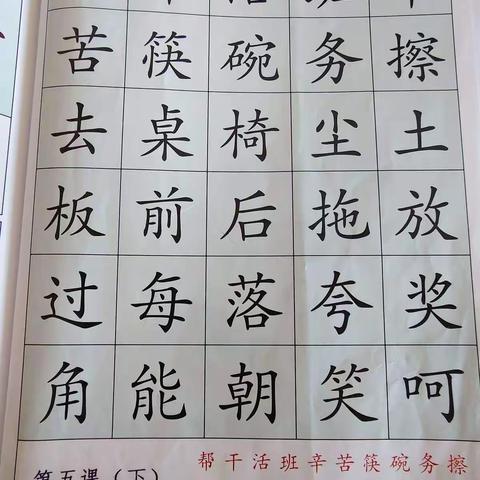 苦筷碗务擦
去桌椅尘土
板前后拖放
过每落夸奖
角能朝笑呵
第五课（下）
帮干活班辛苦筷碗务擦